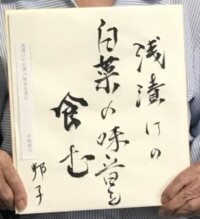 浅漬けの
白菜の味音を
食む
邦子